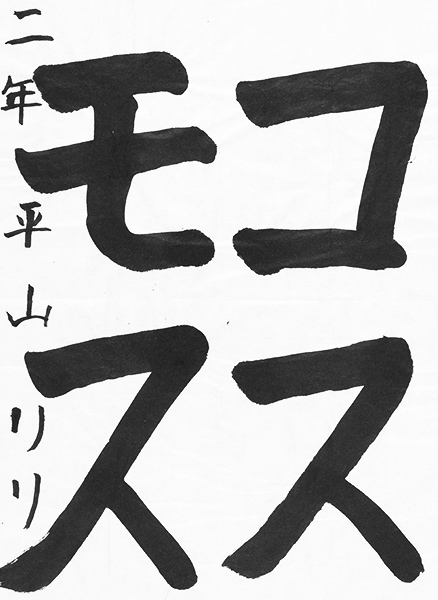 コス
モス
二年 平山 リリ